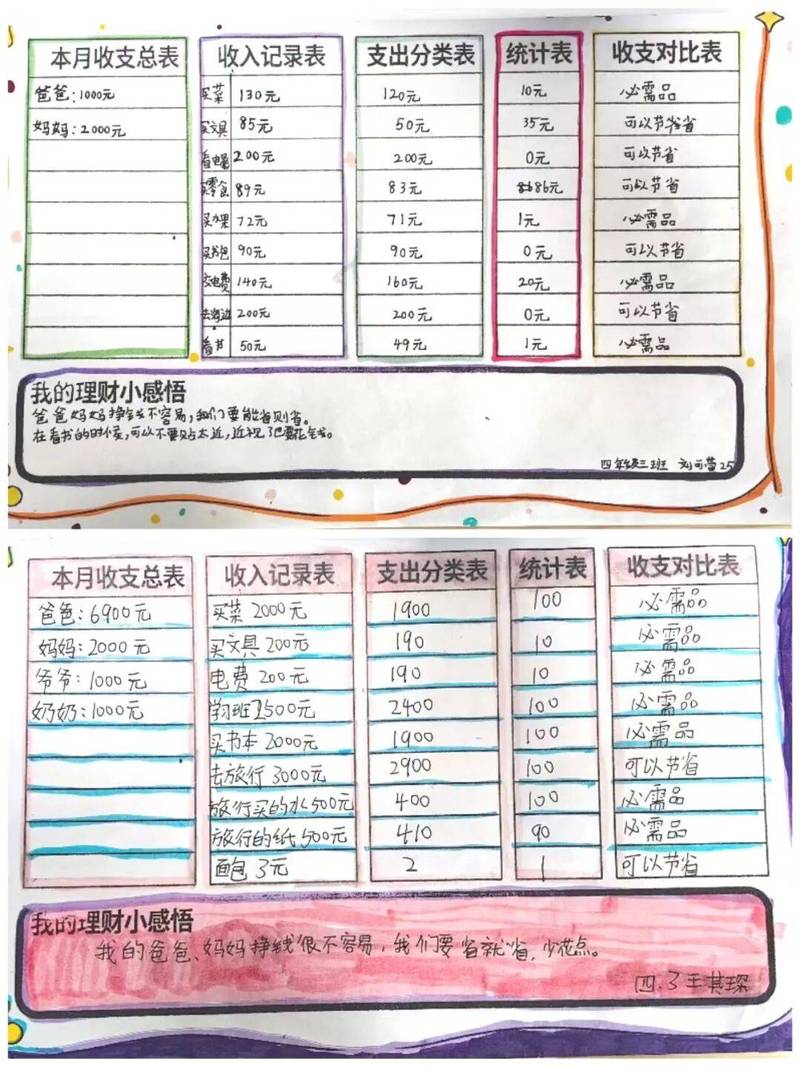 本月收支总表 收入记录表 支出分类表 统计表 收支对比表
爸爸:1000元 买菜 130元 120元 10元 必需品
妈妈:2000元 买文具 85元 50元 35元 可以节省省
看电影 200元 200元 0元 可以节省
买零食 89元 83元 86元 可以节省
买水果 72元 71元 1元 必需品
买书包 90元 90元 0元 可以节省
交电费 140元 160元 20元 必需品
去海边 200元 200元 0元 可以节省
看书 50元 49元 1元 必需品
我的理财小感悟
爸爸妈妈挣钱不容易,我们要能省则省。
在看书的时候,可以不要贴太近,近视了也要花钱。
四年级三班 25
本月收支总表 收入记录表 支出分类表 统计表 收支对比表
爸爸:6900元 买菜 2000元 1900 100 必需品
妈妈:2000元 买文具 200元 190 10 必需品
爷爷:1000元 电费 200元 190 10 必需品
奶奶:1000元 学习班 2500元 2400 100 必需品
买书本 2000元 1900 100 必需品
去旅行 3000元 2900 100 可以节省
旅行买的水 500元 400 100 必需品
旅行的纸 500元 410 90 必需品
面包 3元 2 1 可以节省
我的理财小感悟
我的爸爸、妈妈挣钱很不容易,我们要省就省,少花点。
四.3 王其琛